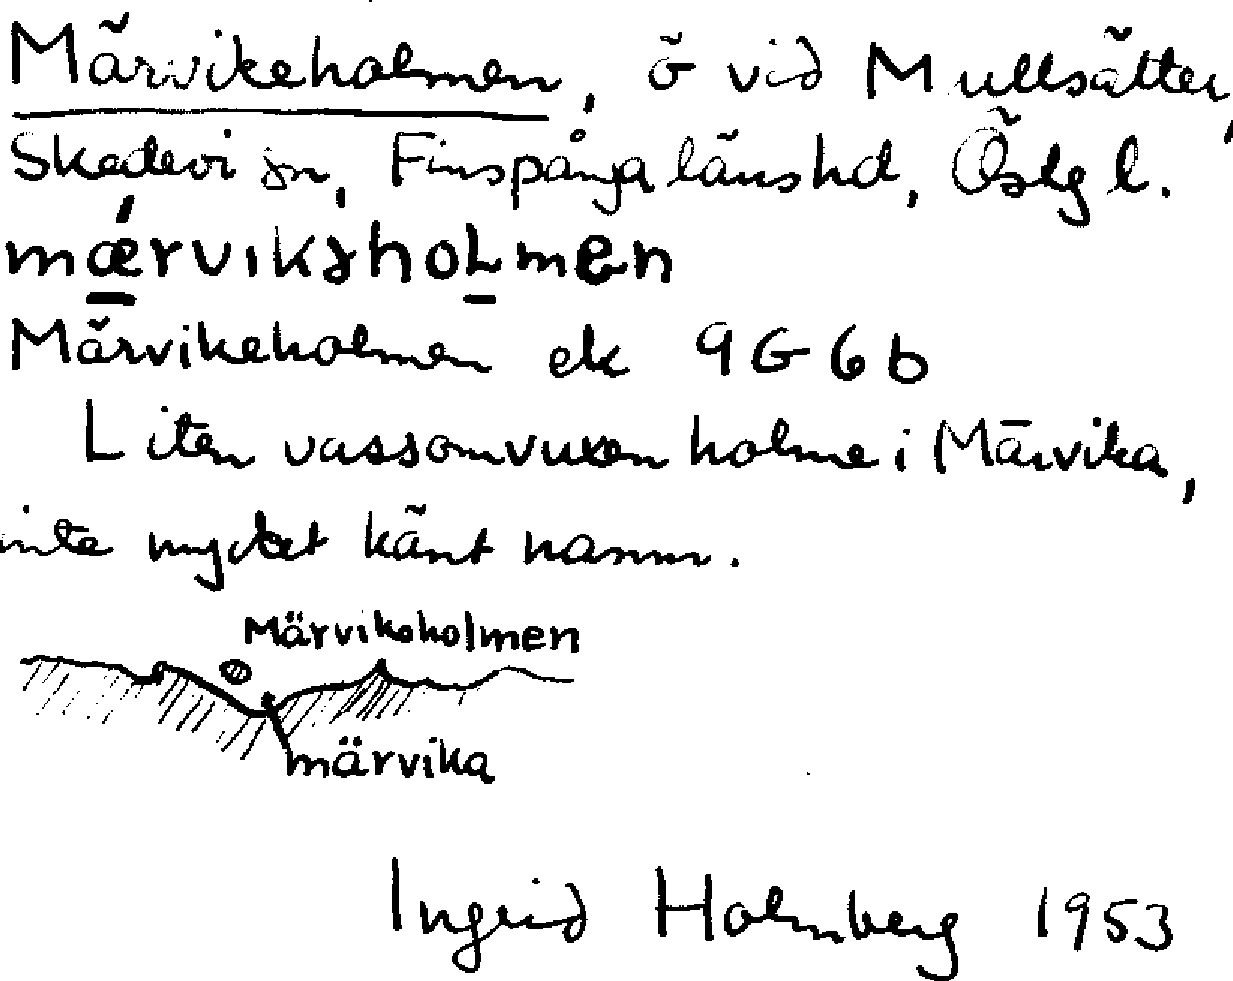 Märvikeholmen, ö vid Mullsätter,
Skedevi sn, Finspånga länshd, Östg l.
mǽrviksholmen
Märvikeholmen ek 9G6b
Liten vassomvuxen holme i Märvika,
inte mycket känt namn.
Märvikeholmen
märvika
Ingrid Holmberg 1953